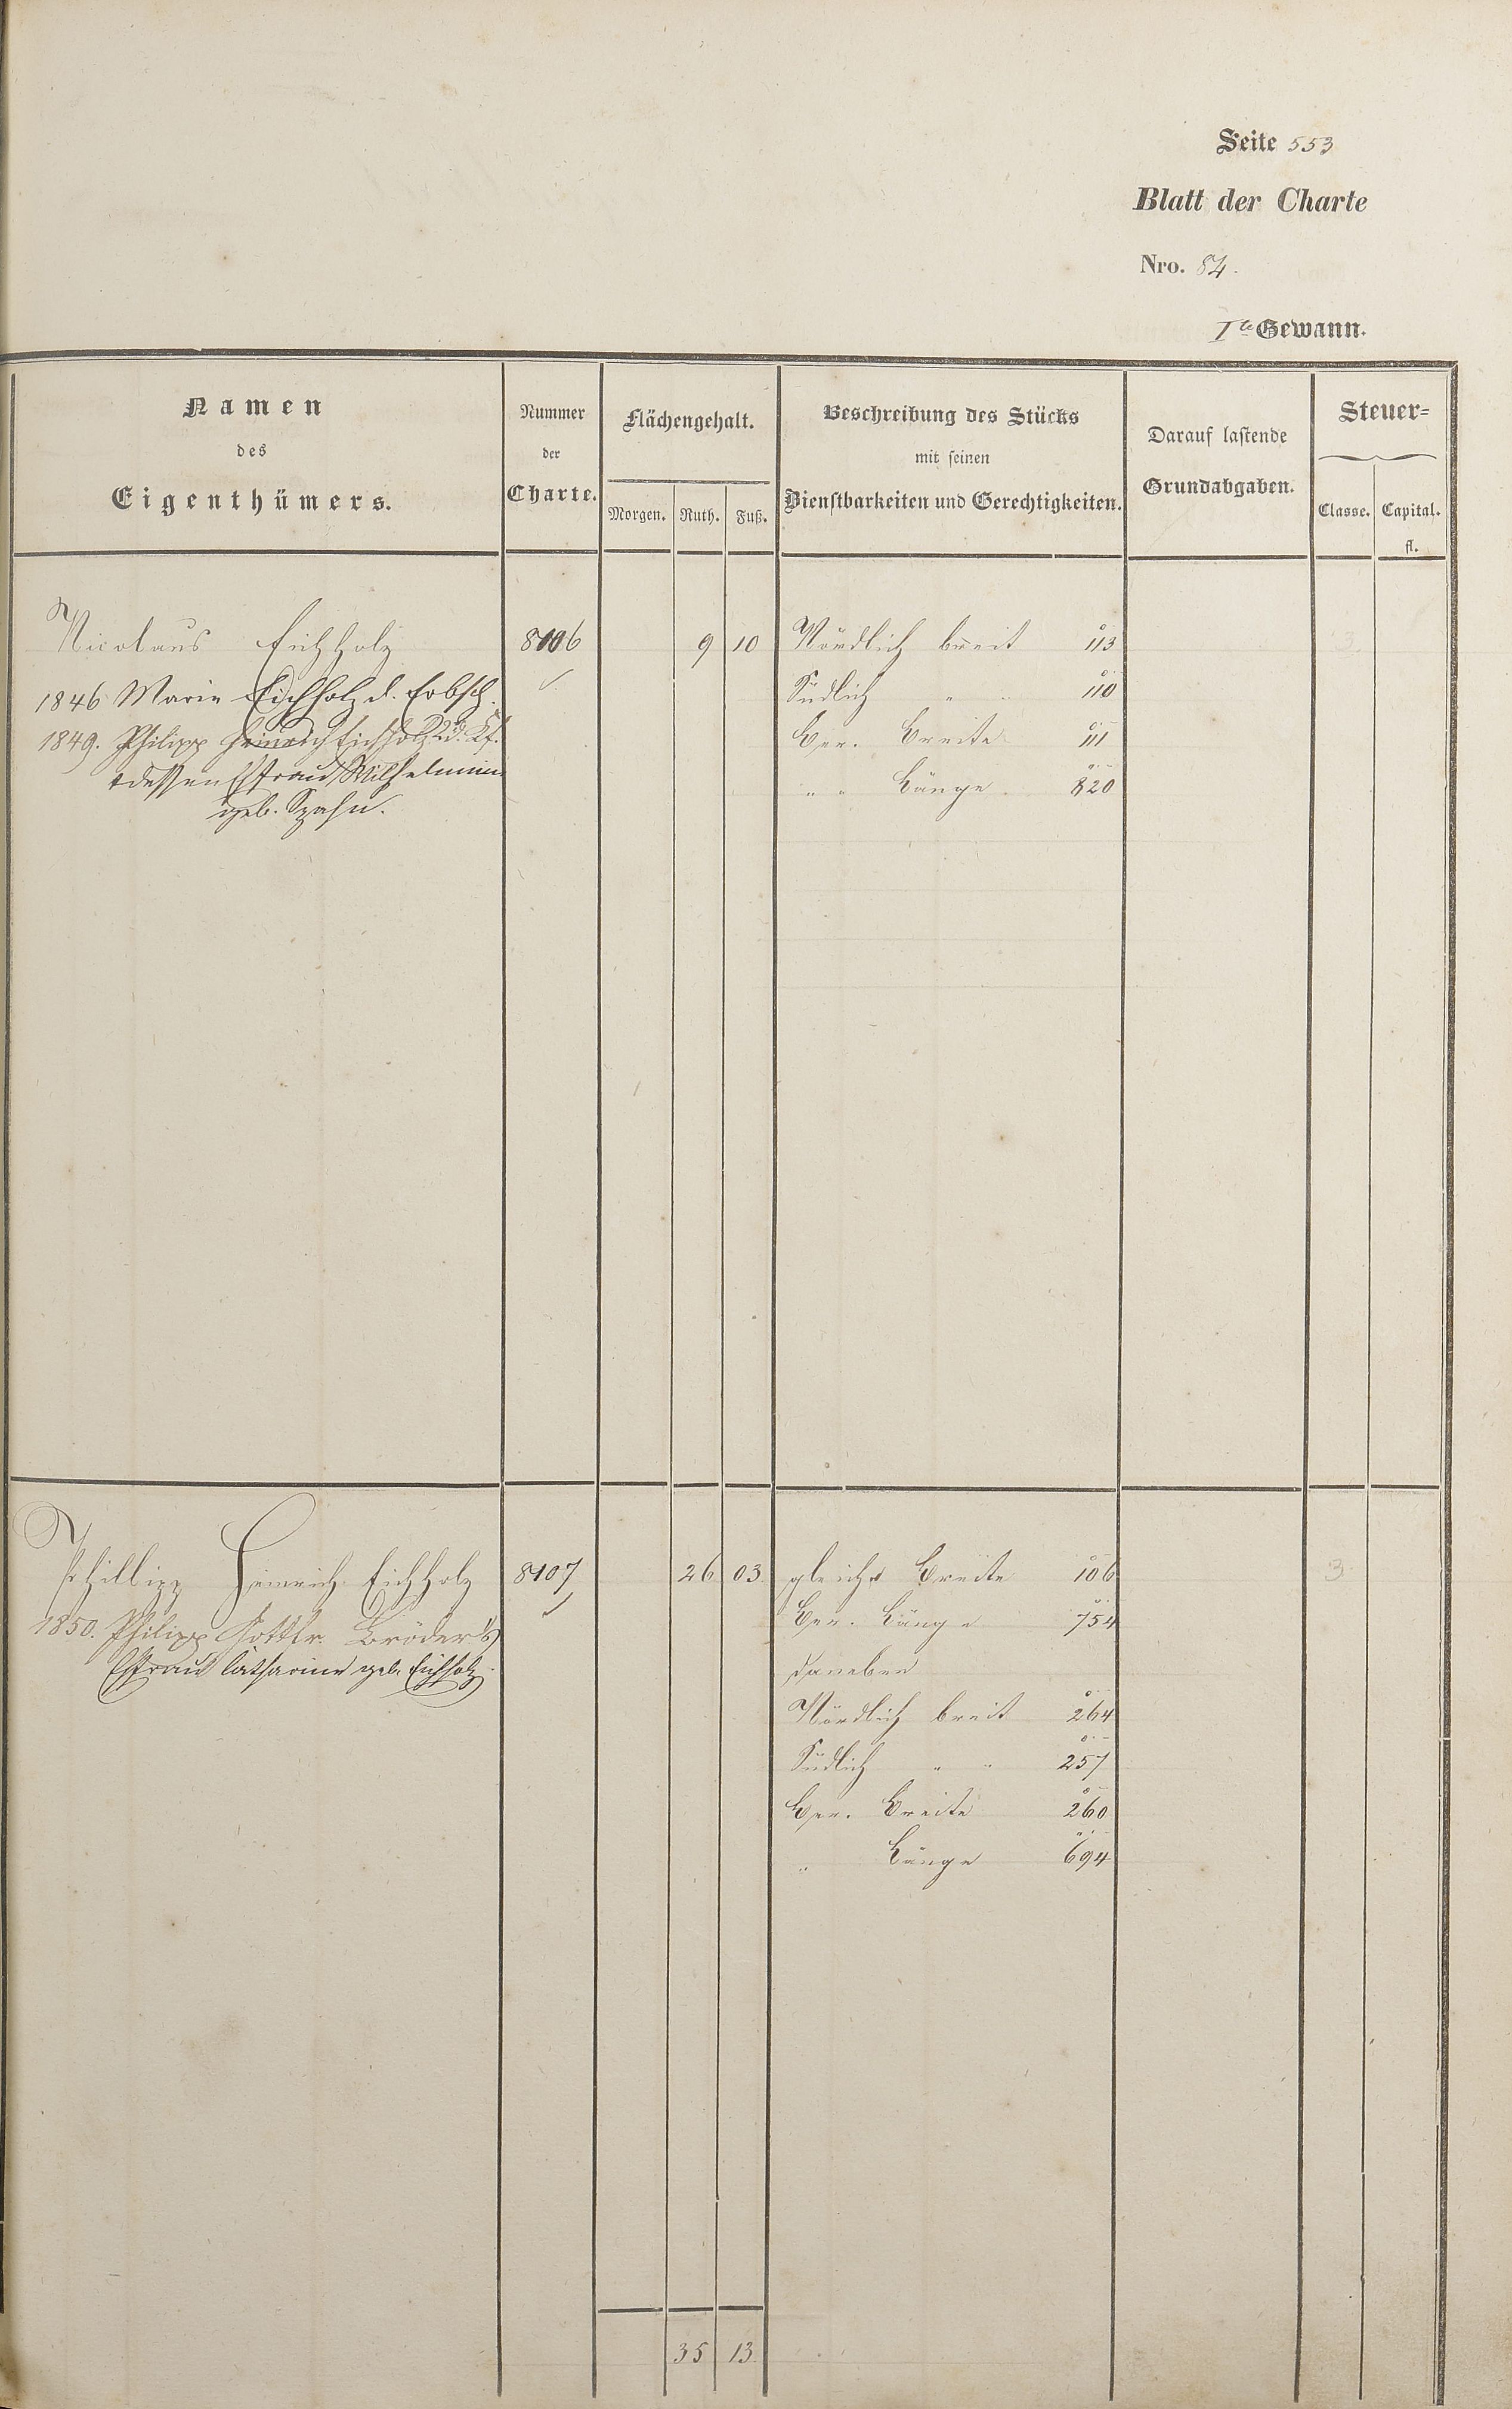 Seite 553
Blatt der Charte
Nro. 84.
Ite Gewann.
Namen des Eigenthümers.
Nummer der Charte.
Flächengehalt.
Morgen. Ruth. Fuß.
Beschreibung des Stücks mit seinen Dienstbarkeiten und Gerechtigkeiten.
Darauf lastende Grundabgaben.
Steuer=
Classe. Capital.
fl.
Nicolaus Eichholz 8106 9 10 Nördlich breit 113 3
1846 Marie Eichholz d. Erbsch. Südlich " " 110
1849. Philipp Heinrich Eichholz d. Kf. Ber. Breite 111
dessen Ehfrau Wilhelmine " " Länge 820
geb. Spahn.
Phillipp Heinrich Eichholz 8107 26 03. gleiche Breite 106 3.
1850. Philipp Gottfr. Bröder's Ber. Länge 754
Ehfrau Catharine geb. Eichholz. daneben
Nördlich breit 264
Südlich " " 257
Ber. Breite 260
" Länge 694
35 13.